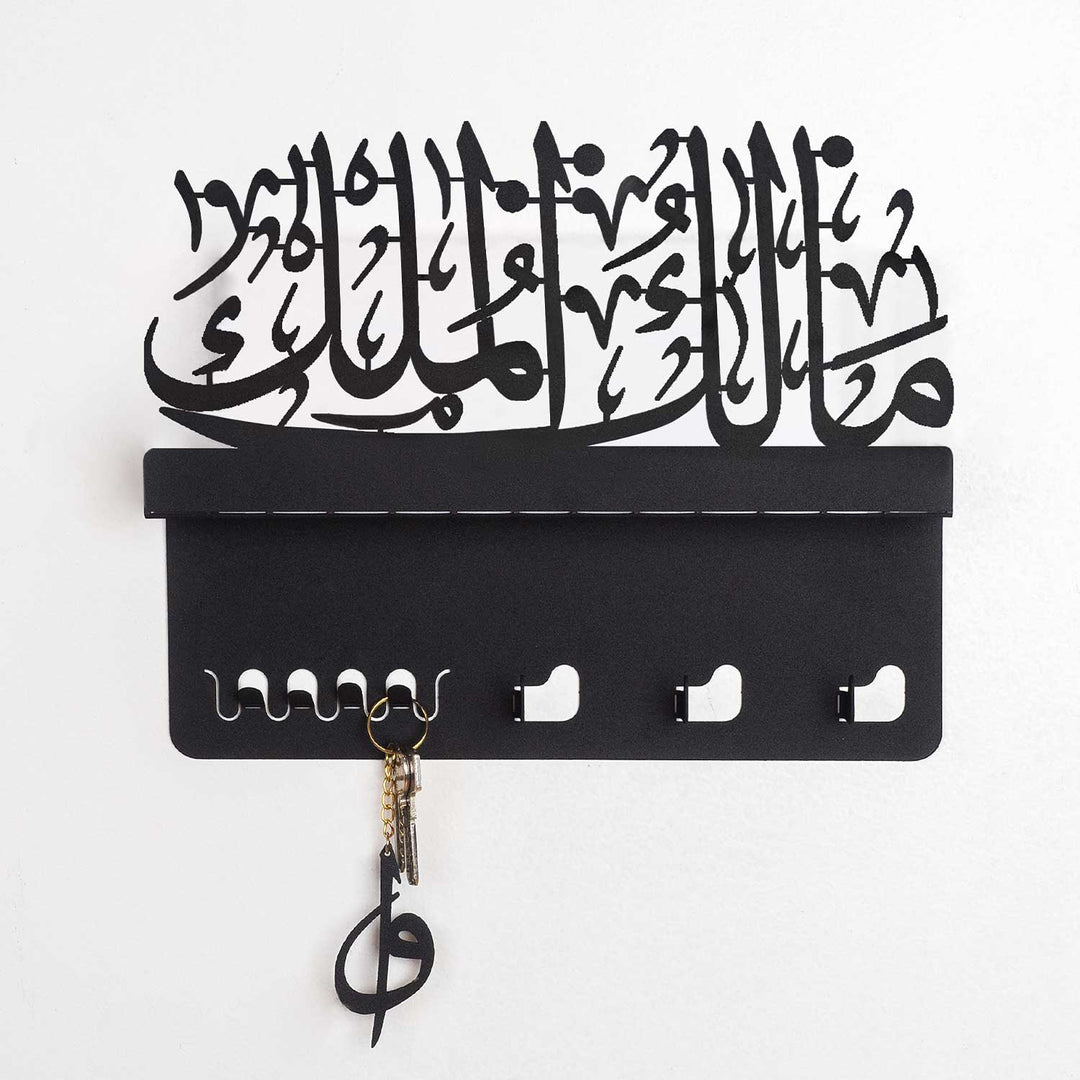 مَالِكَ الْمُلْكِ
و